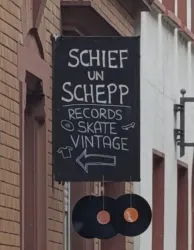 SCHIEF
UN
SCHEPP
RECORDS
SKATE
VINTAGE